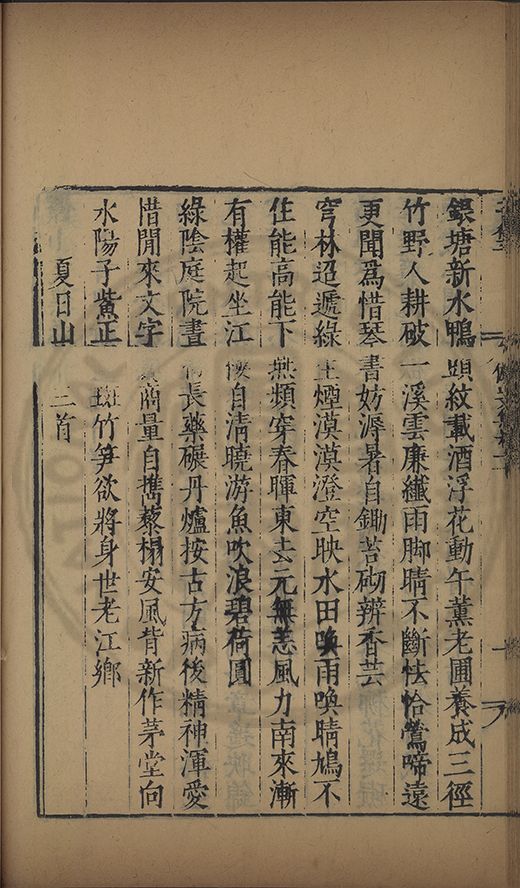 銀塘新水鴨頭紋載酒浮花動午薰老圃養成三徑
竹野人耕破一溪雲廉纖雨脚晴不斷怯恰鶯啼遠
更聞爲惜琴書妨溽暑自鋤苔砌辨香芸
穹林迢遞綠生煙漠漠澄空映水田喚雨喚晴鳩不
住能高能下燕頻穿春暉東去元無恙風力南來漸
有權起坐江自清曉游魚吹浪碧荷圓
綠陰庭院晝長藥碾丹爐按古方病後精神渾愛
惜閒來文字商量自擕藜榻安風背新作茅堂向
水陽子紫正斑竹笋欲將身世老江鄉
夏日山三首